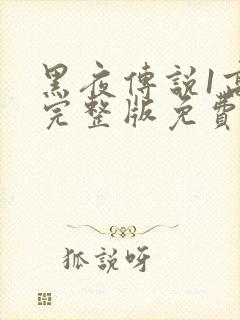 黑夜傳説1高
完整版免費
狐説呀